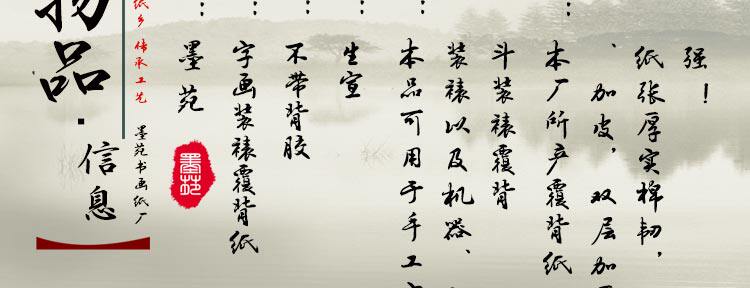 物品·信息
纸乡 传承工艺
墨苑书画纸厂
：墨苑
墨苑
：字画装裱覆背纸
：不带背胶
：生宣
：本品可用于手工
装裱以及机器、
斗装裱覆背
：本厂所产覆背纸
、加皮，双层加
纸张厚实棉韧，
强！